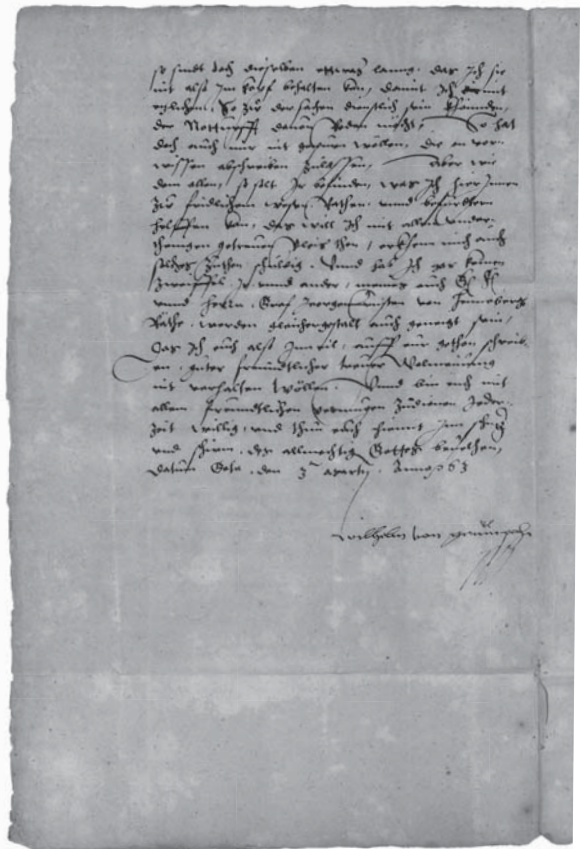 so sindt doch dieselben ettwas lanng, das Ich sie
nit alß Im kopf behalten kan, damit Ich
So zu der sachen dienstlich sein
der Notturfft dauon Reden möcht, So hat
doch auch mir nit wöllen, die on vor-
wissen abschreiben zulassen, Aber wie
dem allem, so solt Ir befinden, was Ich hier Innen
zu fridlichem wesen Rathen vnnd befürdern
helffen kan, das will Ich mit allem vnder-
thenigen getreuen vleis thon, erkhenn mich auch
solchs zuthon schuldig, Vnnd hab Ich gar keinen
zweiffel, Ir vnnd ander, meines auch
vnnd herrn, Graf Georgen Ernsten von Hennenberg
Räthe, werden gleichergstalt auch geneigt sein,
Das Ich euch alß Inn eil, auff eur gethon schrei-
en, guter freundtlicher treuer Wolmeinung
nit verhalten wöllen, Vnnd bin euch mit
allem freundtlichen vermugen zudienen Jeder-
zeit willig, vnnd thun euch hiemit Inn schutz
vnnd schirm des allmechtig Gottes beuelhen,
Datum Gota, den 3 Anno 63
Wilhelm von Grumpach